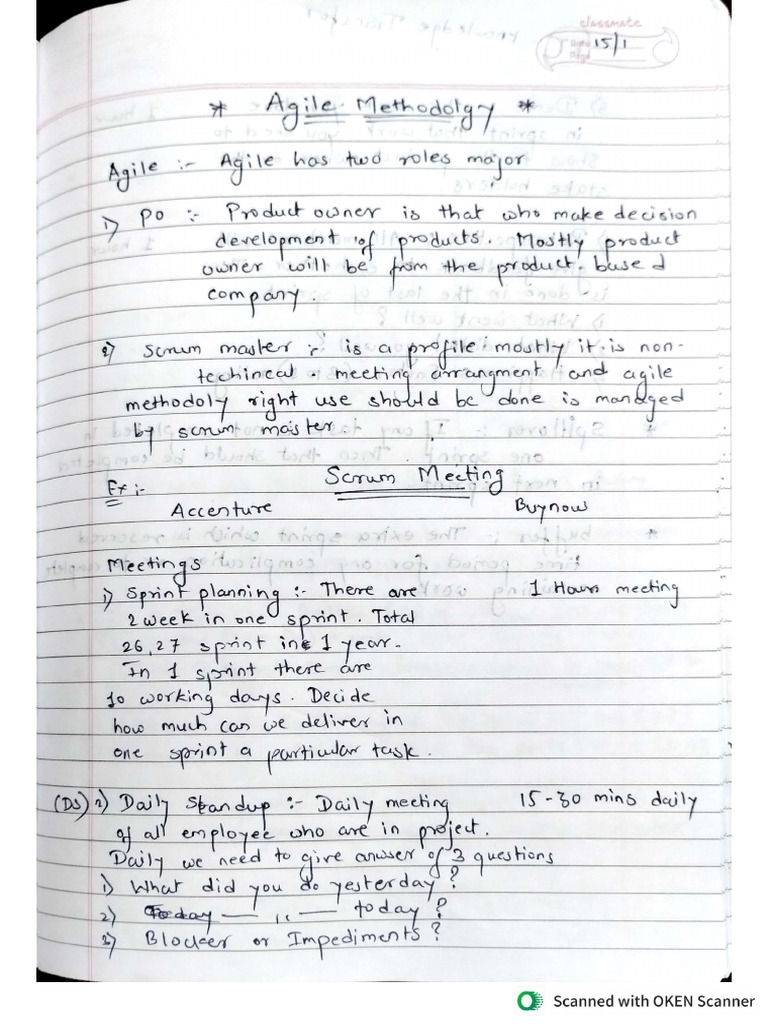 classmate
Date
Page
15/1
* Agile Methodolgy *
Agile :- Agile has two roles major
1) PO :- Product owner is that who make decision
development of products. Mostly product
owner will be from the product based
company.
2) Scrum master :- is a profile mostly it is non-
techineal. meeting arrangment and agile
methodoly right use should be done is managed
by scrum master.
Ex :- Scrum Meeting
Accenture Buynow
Meetings
1) Sprint planning :- There are 1 Hours meeting
2 week in one sprint. Total
26, 27 sprint in 1 year.
In 1 sprint there are
10 working days. Decide
how much can we deliver in
one sprint a particular task.
(DS) 2) Daily Standup :- Daily meeting 15-30 mins daily
of all employee who are in project.
Daily we need to give answer of 3 questions
1) What did you do yesterday?
2) Today — ,, — today?
3) Blocker or Impediments?
Scanned with OKEN Scanner